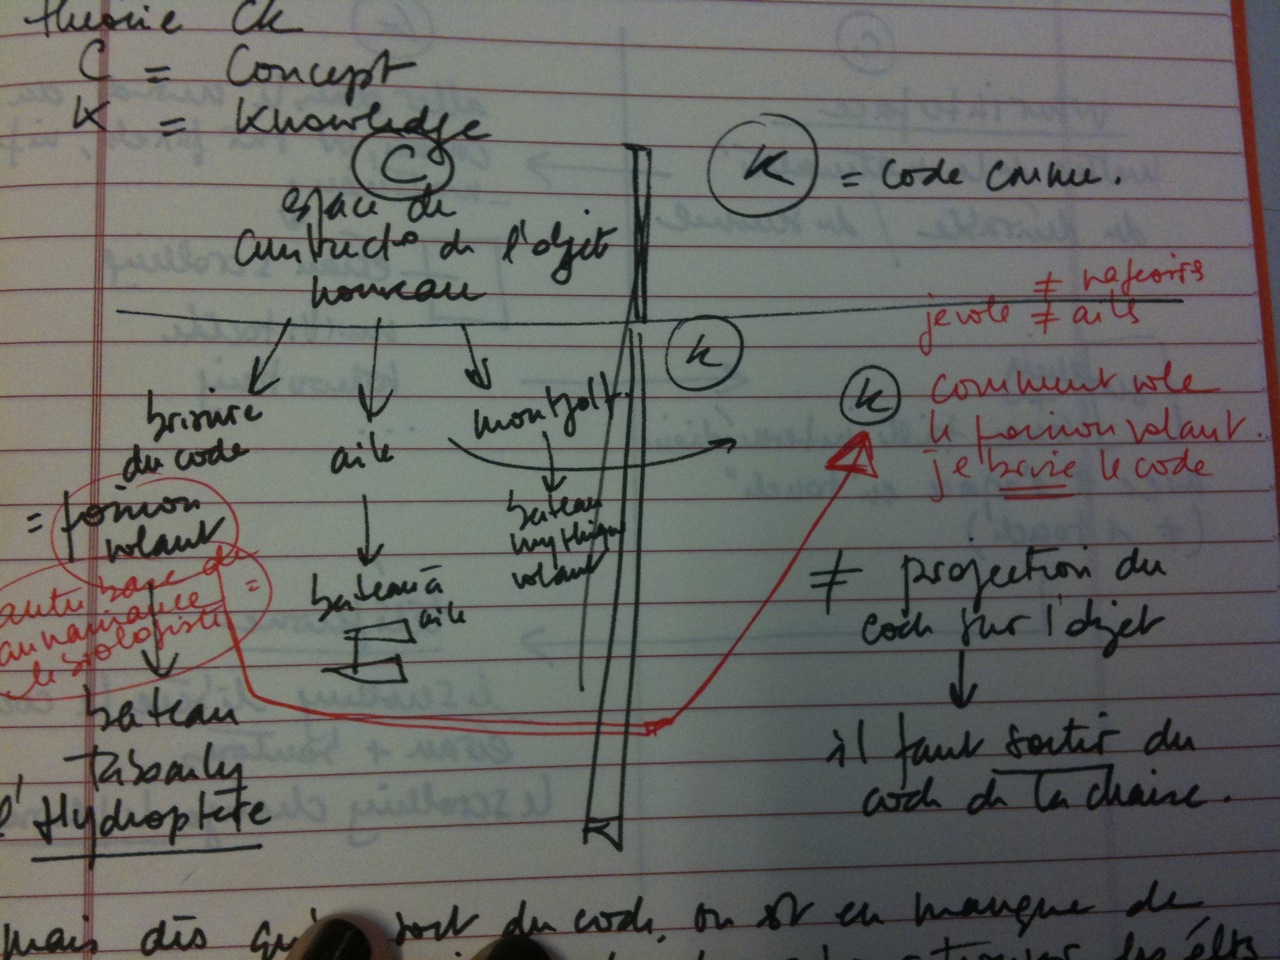 théorie Ck
C = Concept
K = Knowledge
C
espace de
construct° de l'objet
nouveau
K = code connu.
brisure
du code
= poisson
volant
autre base de
connaissance =
le biologiste
bateau
Tabarly
l'Hydroptère
aile
bateau à
aile
montgolf.
bateau
mythique
volant
k
k
≠ nageoires
je vole ≠ ailes
comment vole
le poisson volant.
je brise le code
≠ projection du
code sur l'objet
il faut sortir du
code de la chaise.
mais dès qu' sort du code, on est en manque de